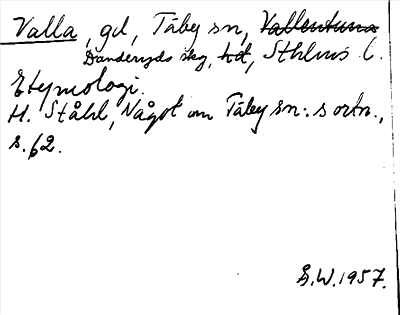 Valla, gd, Täby sn, Vallentuna
Danderyds skg, hd, Sthlms l.
Etymologi.
H. Ståhl, Något om Täby sn:s ortn.,
s. 62.
Å.W.1957.